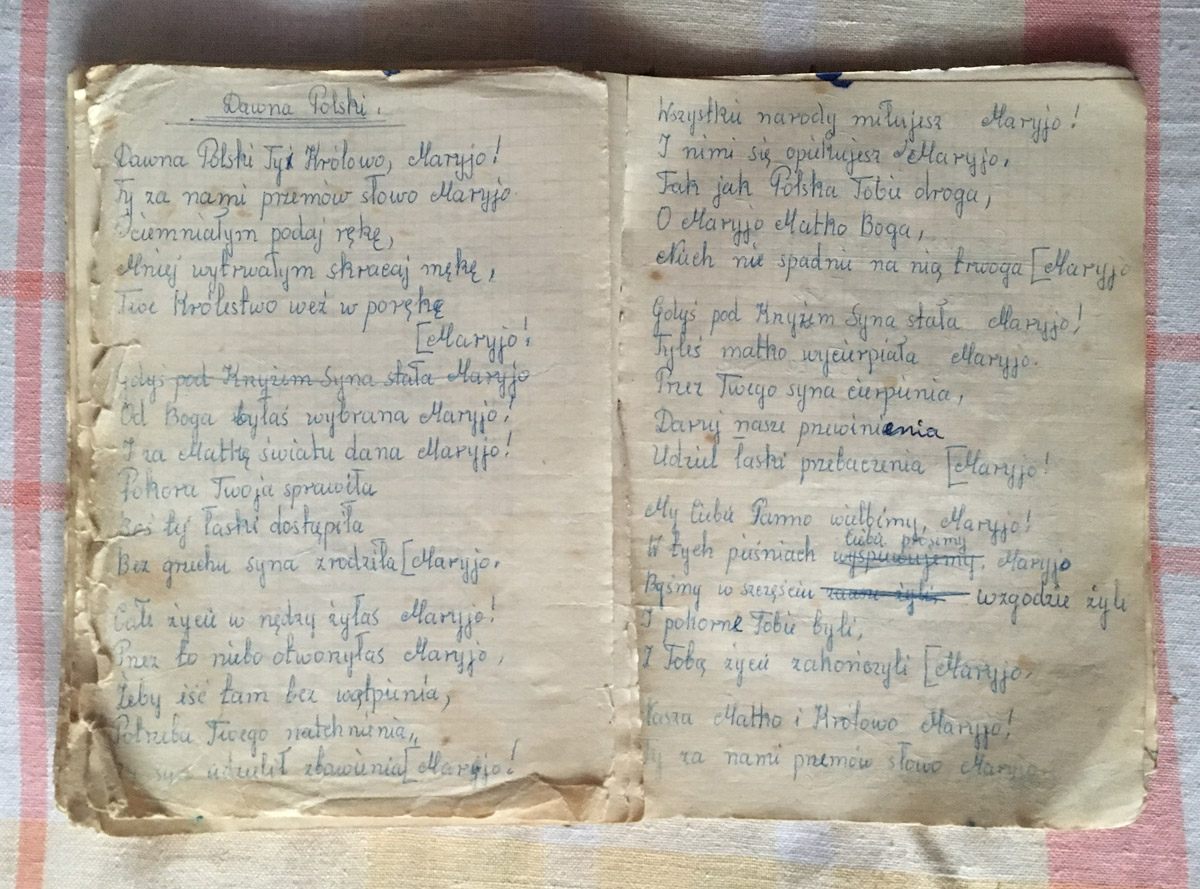 Dawna Polski.
Dawna Polski Tyś Królowo, Maryjo!
Ty za nami przemów słowo Maryjo
Ociemniałym podaj rękę,
Mniej wytrwałym skracaj mękę,
Twe Królestwo weź w porękę
[Maryjo!
Gdyś pod Krzyżem Syna stała Maryjo
Od Boga byłaś wybrana Maryjo!
I za Matkę światu dana Maryjo!
Pokora Twoja sprawiła
Żeś tej łaski dostąpiła
Bez grzechu syna zrodziła [Maryjo.
Całe życie w nędzy żyłaś Maryjo!
Przez to niebo otworzyłaś Maryjo,
Żeby iść tam bez wątpienia,
Potrzeba Twego natchnienia,
syn udzielił zbawienia [Maryjo!
Wszystkie narody miłujesz Maryjo!
I nimi się opiekujesz Maryjo,
Tak jak Polska Tobie droga,
O Maryjo Matko Boga,
Niech nie spadnie na nią trwoga [Maryjo
Gdyś pod Krzyżem Syna stała Maryjo!
Tyleś matko wycierpiała Maryjo.
Przez Twego syna cierpienia,
Daruj nasze przewinienia
Udziel łaski przebaczenia [Maryjo!
My Ciebie Panno wielbimy, Maryjo!
Ciebie prosimy
W tych pieśniach wyśpiewujemy, Maryjo
Byśmy w szczęściu zawsze żyli wzgodzie żyli
I pokorne Tobie byli,
Z Tobą życie zakończyli [Maryjo.
Nasza Matko i Królowo Maryjo!
Ty za nami przemów słowo Maryjo